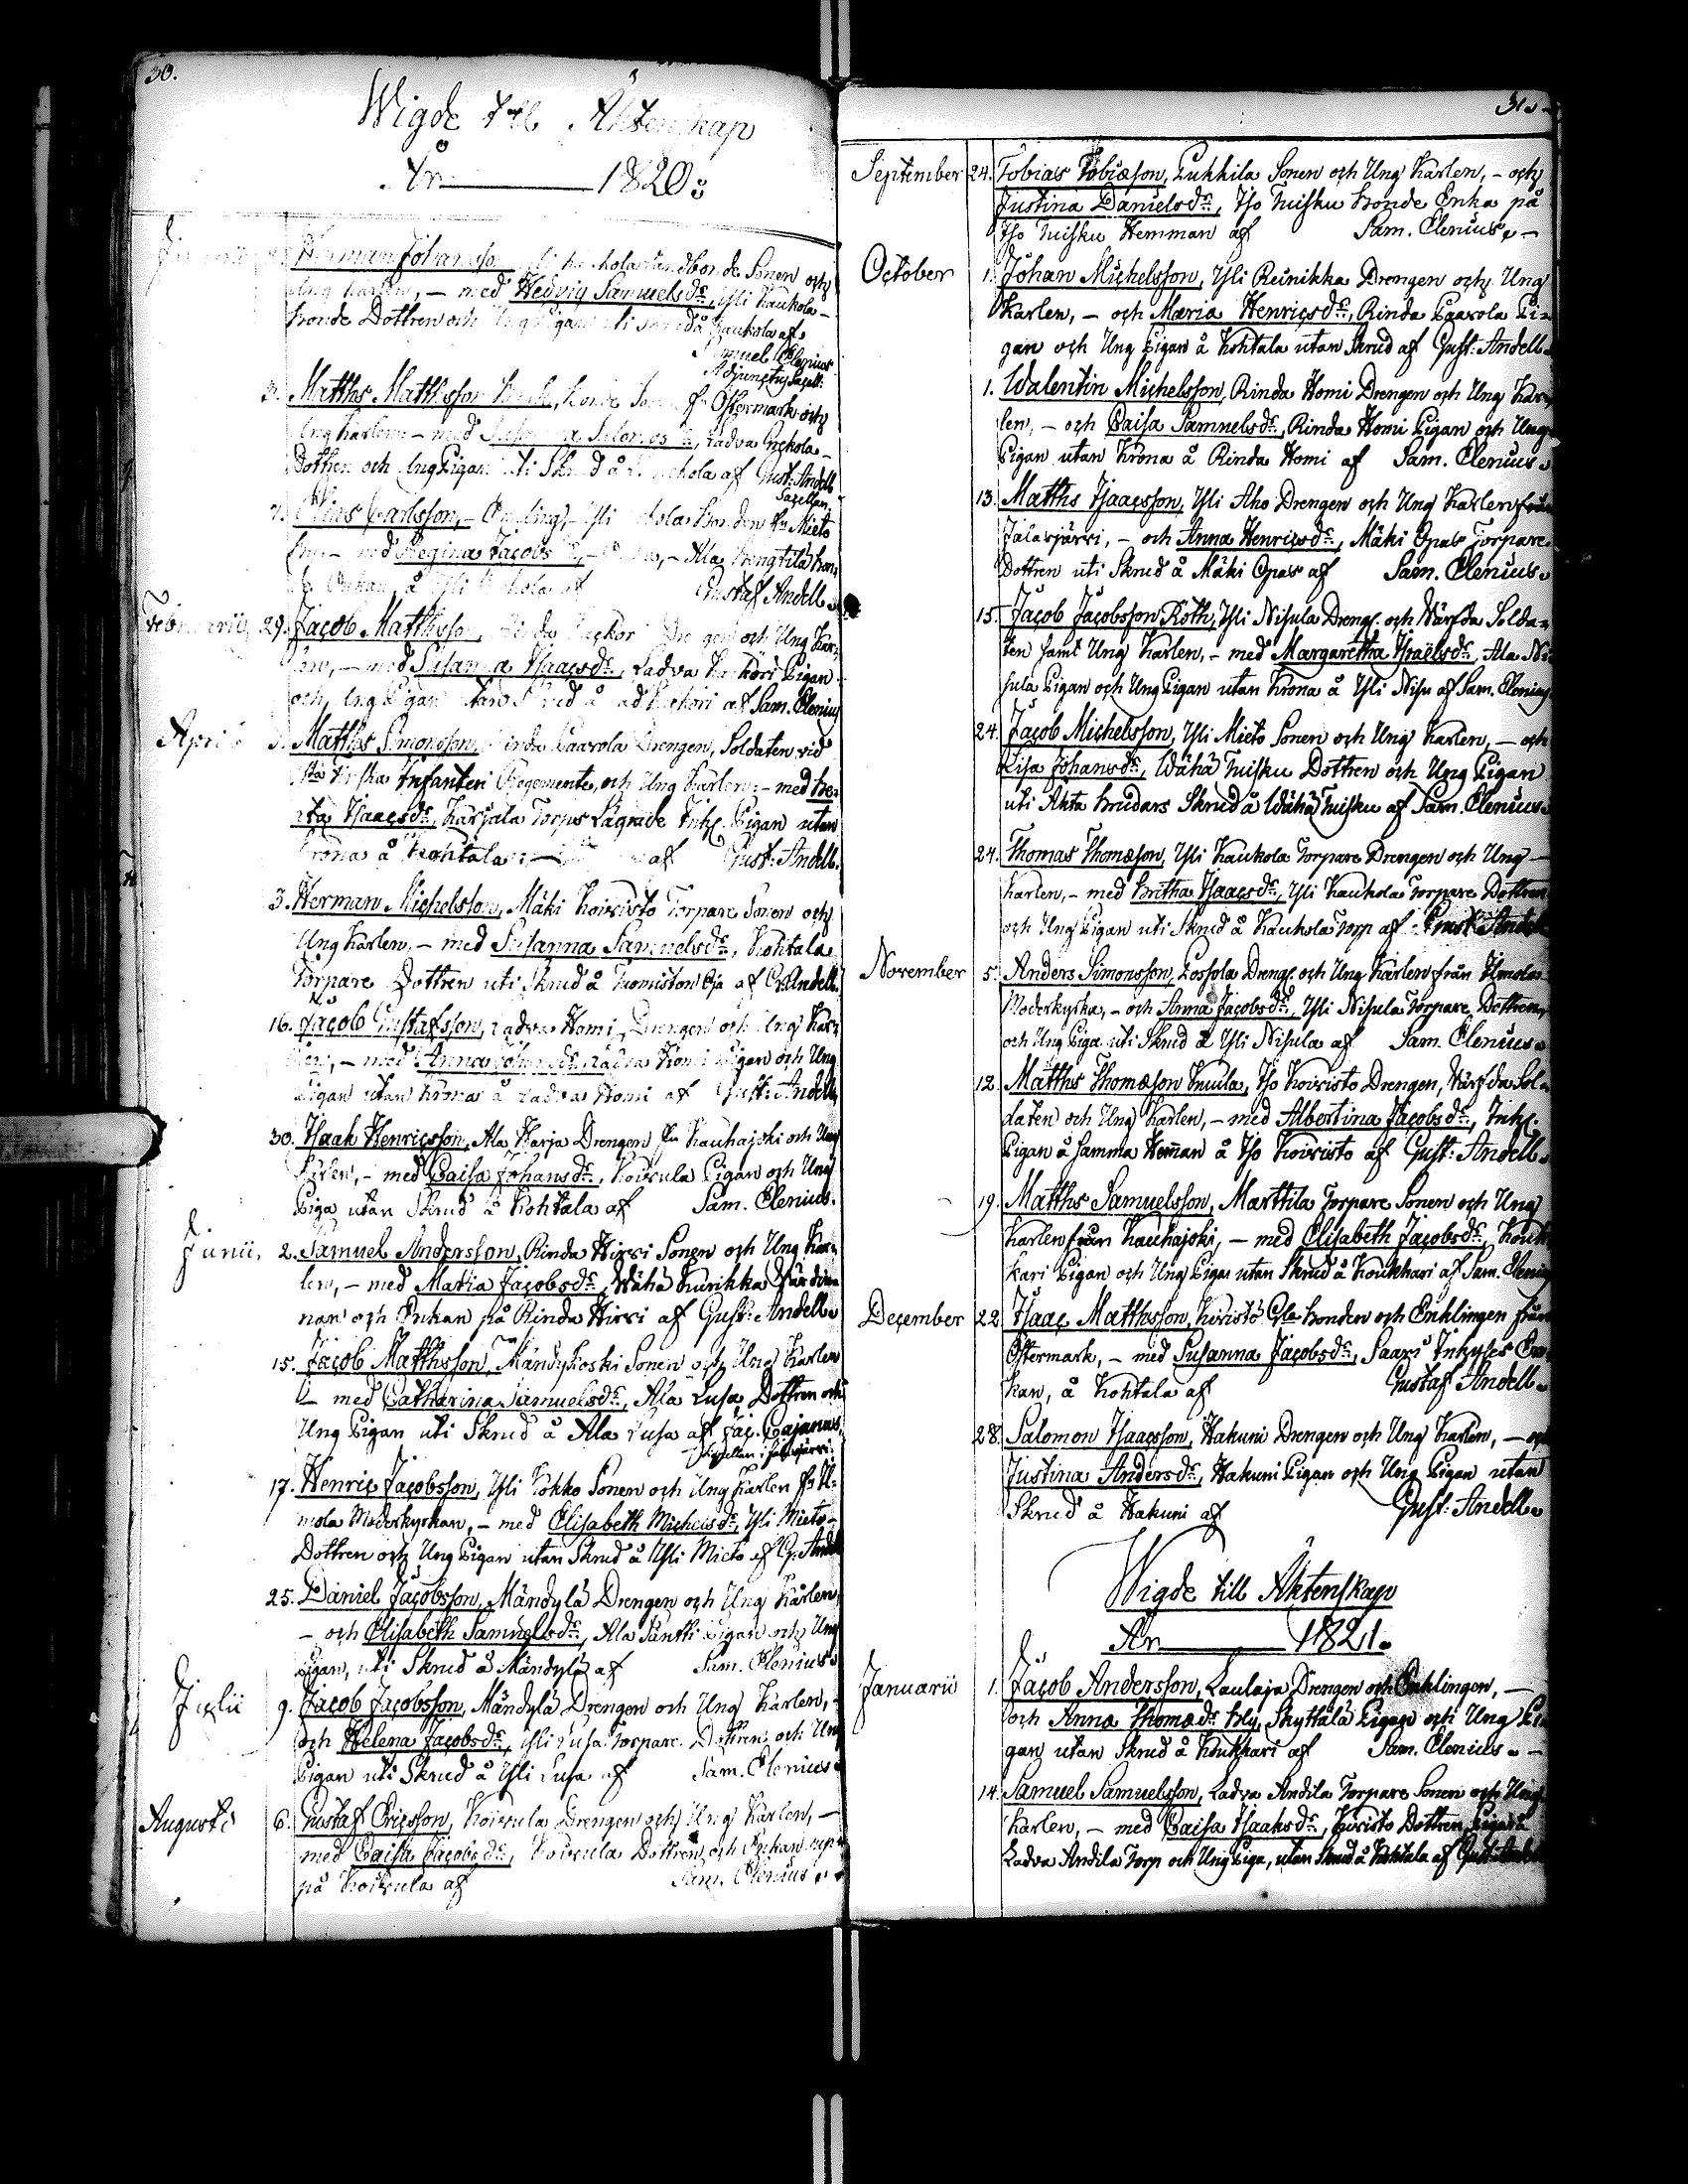 30.
Wigde till Äktenskap
År 1820:
Herman Johansson, Kaukola Landbonde Sonen och
Ung Karlen, – med Hedvig Samuelsdr, Yli Kaukola
Bonde Dottren och Ung Pigan uti Kaukola af
Samuel Clenius
Adjunctus Sacell:
3. Matths Matthsson Bonde Sonen fr. Östermark och
Ung Karlen, – med Ladva
Dottren och Ung Pigan uti Skrud å af Gust: Andell
Sacellan.
Carlsson, – Enkling, – Yli Bonden fr. Mieto
med Regina Jacobs Ala
Enkan, å Yli af Gustaf Andell.
Februarii 29. Jacob Matthsson, Rinda Drengen och Ung Kar-
len, – med Susanna Isaacsdr, Ladva Pigan
och Ung Pigan utan Skrud å af Sam. Clenius
April 3. Matths Simonsson, Rinda Paavola Drengen, Soldaten vid
Finska Infanteri Regemente, och Ung Karlen, – med Be-
ata Isaacsdr, Karjala Torps Lägrade Inh. Pigan utan
Krona å Kohtala af Gust: Andell.
3. Herman Michelsson, Mäki Koivisto Torpare Sonen och
Ung Karlen, – med Susanna Samuelsdr, Kohtala
Torpare Dottren uti Skrud å Tuomiston Oja af G. Andell.
16. Jacob Gustafsson, Ladva Homi Drengen och Ung Kar-
len, – med Anna Johansdr, Ladva Homi Pigan och Ung
Pigan utan Krona å Ladva Homi af Gust: Andell,
30. Isaak Henricsson, Ala Harja Drengen fr. Kauhajoki och Ung
Karlen, – med Caisa Johansdr, Koivula Pigan och Ung
Piga utan Skrud å Kohtala af Sam. Clenius.
Junii. 2. Samuel Andersson, Rinda Hirvi Sonen och Ung Kar-
len, – med Maria Jacobsdr, Wähä Kurikka Värdin-
nan och Enkan på Rinda Hirvi af Gust: Andell.
15. Jacob Matthsson, Mändykoski Sonen och Ung Karlen
– med Catharina Samuelsdr, Ala Lusa Dottren och
Ung Pigan uti Skrud å Ala Lusa af Jac. Cajanus,
Capellan i Jalasjärvi.
17. Henric Jacobsson, Yli Kokko Sonen och Ung Karlen fr. Il-
mola Moderkyrkan, – med Elisabeth Michelsdr, Yli Mieto
Dottren och Ung Pigan utan Skrud å Yli Mieto af G. Andell
25. Daniel Jacobsson, Mändylä Drengen och Ung Karlen
– och Elisabeth Samuelsdr, Ala Säntti Pigan och Ung
Pigan, uti Skrud å Mändylä af Sam. Clenius.
Julii 9. Jacob Jacobsson, Mändylä Drengen och Ung Karlen,
och Helena Jacobsdr, Yli Lusa Torpare Dottren och Ung
Pigan uti Skrud å Yli Lusa af Sam. Clenius.
Augusti 6. Gustaf Ericsson, Koivula Drengen och Ung Karlen, –
med Caisa Jacobsdr, Koivula Dottren och Enkan
på Koivula af Sam. Clenius.
31.
September 24. Tobias Tobiæson, Luhkila Sonen och Ung Karlen, – och
Justina Danielsdr, Iso Tuisku Bonde Enka på
Iso Tuisku Hemman af Sam. Clenius. –
October 1. Johan Michelsson, Yli Reinikka Drengen och Ung
Karlen, – och Maria Henricsdr, Rinda Paavola Pi-
gan och Ung Pigan å Kohtala utan Skrud af Gust: Andell.
1. Walentin Michelsson, Rinda Homi Drengen och Ung Kar-
len, – och Caisa Samuelsdr, Rinda Homi Pigan och Ung
Pigan utan Krona å Rinda Homi af Sam. Clenius.
13. Matths Isaacsson, Yli Aho Drengen och Ung Karlen från
Jalasjärvi, – och Anna Henricsdr, Mäki Opas Torpare
Dottren uti Skrud å Mäki Opas af Sam. Clenius.
15. Jacob Jacobsson Röth, Yli Nisula Dreng. och Värfda Solda-
ten samt Ung Karlen, – med Margaretha Israëlsdr, Ala Ni-
sula Pigan och Ung Pigan utan Krona å Yli Nisu af Sam. Clenius.
24. Jacob Michelsson, Yli Mieto Sonen och Ung Karlen, – och
Lisa Johansdr, Wähä Tuisku Dottren och Ung Pigan
uti Äkta Brudars Skrud å Wähä Tuisku af Sam. Clenius.
24. Thomas Thomæson, Yli Kaukola Torpare Drengen och Ung –
Karlen, – med Britha Isaacsdr, Yli Kaukola Torpare Dottren
och Ung Pigan uti Skrud å Kaukola Torp af Gust: Andell
November 5. Anders Simonsson, Drenge. och Ung Karlen från Ilmola
Moderkyrka, – och Anna Jacobsdr, Yli Nisula Torpare Dottren
och Ung Piga uti Skrud å Yli Nisula af Sam. Clenius.
12. Matths Thomæson Iso Koivisto Drengen, Värfda Sol-
daten och Ung Karlen, – med Albertina Jacobsdr, Inh.
Pigan å samma Heman å Iso Koivisto af Gust: Andell.
19. Matths Samuelsson, Marttila Torpare Sonen och Ung
Karlen från Kauhajoki, – med Elisabeth Jacobsdr, Kouk-
kari Pigan och Ung Piga utan Skrud å Koukkari af Sam. Clenius
December 22. Isaac Matthsson, Bonden och Enklingen från
Östermark, – med Susanna Jacobsdr, Saari Inhyses En-
kan, å Kohtala af Gustaf Andell.
28. Salomon Isaacsson, Hakuni Drengen och Ung Karlen, – och
Justina Andersdr, Hakuni Pigan och Ung Pigan utan
Skrud å Hakuni af Gust: Andell.
Wigde till Äktenskap
År 1821.
Januarii 1. Jacob Andersson, Laulaja Drengen och Enklingen, –
och Anna Thomædr Bly, Skyttälä Pigan och Ung Pi-
gan utan Skrud å Koukkari af Sam. Clenius. –
14. Samuel Samuelsson, Ladva Andila Torpare Sonen och Ung
Karlen, – med Caisa Isaaksdr, Koivisto Dottren Pigan å
Ladva Andila Torp och Ung Piga, utan Skrud å Kohtala af Gust: Andell